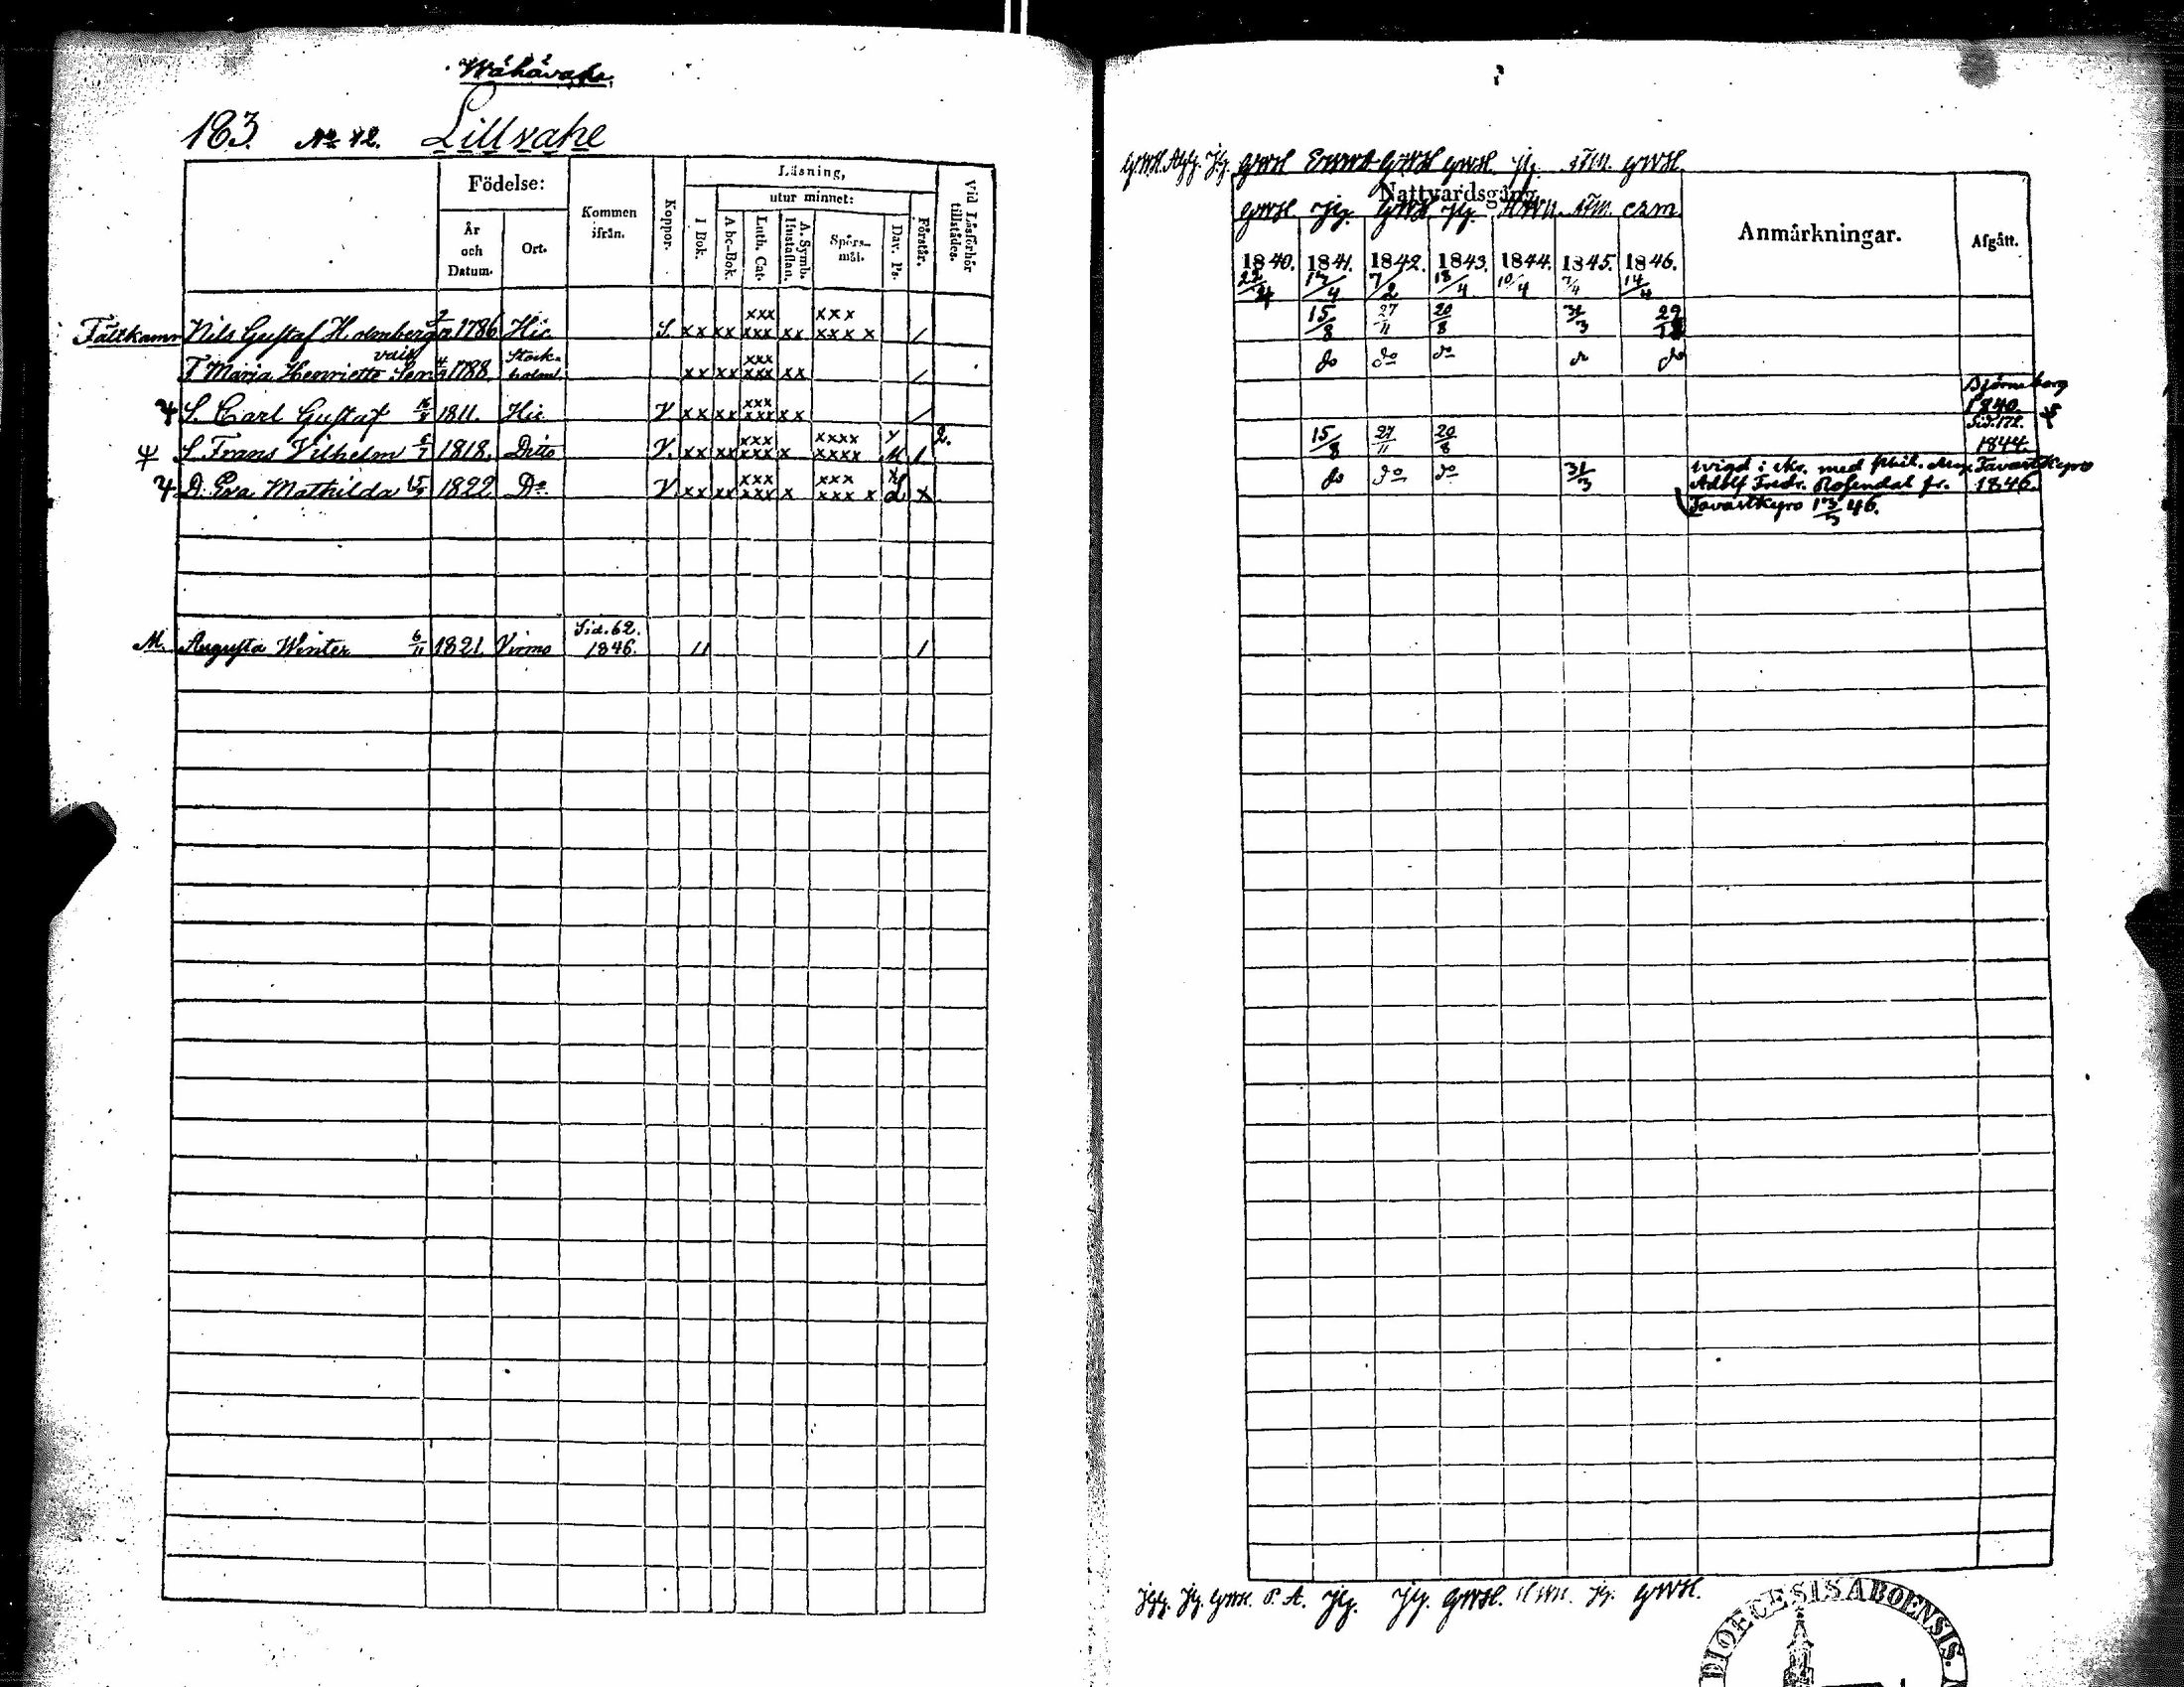 Wähävahe
183. No 42. Lillvahe
Födelse:
År och Datum.
Ort.
Kommen ifrån.
Koppor.
Läsning,
I Bok.
utur minnet:
Abc-Bok.
Luth. Cat.
A. Symb. Hustaflan.
Spörs-mål.
Dav. Ps.
Förstår.
Vid Läsförhör tillstädes.
Fältkamr Nils Gustaf Holmberg 1786 Hic S. xx xx xxx xxx xx xxx xxxx /
F Maria Henrietta 1788. Stockholm xx xx xxx xxx xx /
S. Carl Gustaf 16/8 1811. Hic V xx xx xxx xxx xx /
S. Frans Vilhelm 1818. Dito V. xx xx xxx xxx x xxxx xxxx / 2.
D. Eva Mathilda 1822 Do V xx xx xxx xxx x xxx xxx x x
M. Augusta Winter 6/11 1821. Virmo Sid. 62. 1846. 11 1
GWH. GWH GWH. Jg. GWH.
Nattvardsgång.
GWH. Jg. GWH. Jg.
1840. 1841. 1842. 1843. 1844. 1845. 1846.
22/4 12/4 7/2 18/4 10/4 7/4 14/4
Anmärkningar.
Afgått.
15/8 27/11 20/8 31/3 29/12
do do do do do
Björneborg 1840.
15/8 27/11 20/8 Sid. 172. 1844.
do do do 31/3 wigd i äkt. med Phil. Mag. Tavastkyro
Adolf Fredr. Rosendal fr. 1846.
Tavastkyro 13/3 46.
Jg. GWH. P. A. Jg. Jg. GWH. Jg. GWH.
DIOECESIS ABOENSIS.